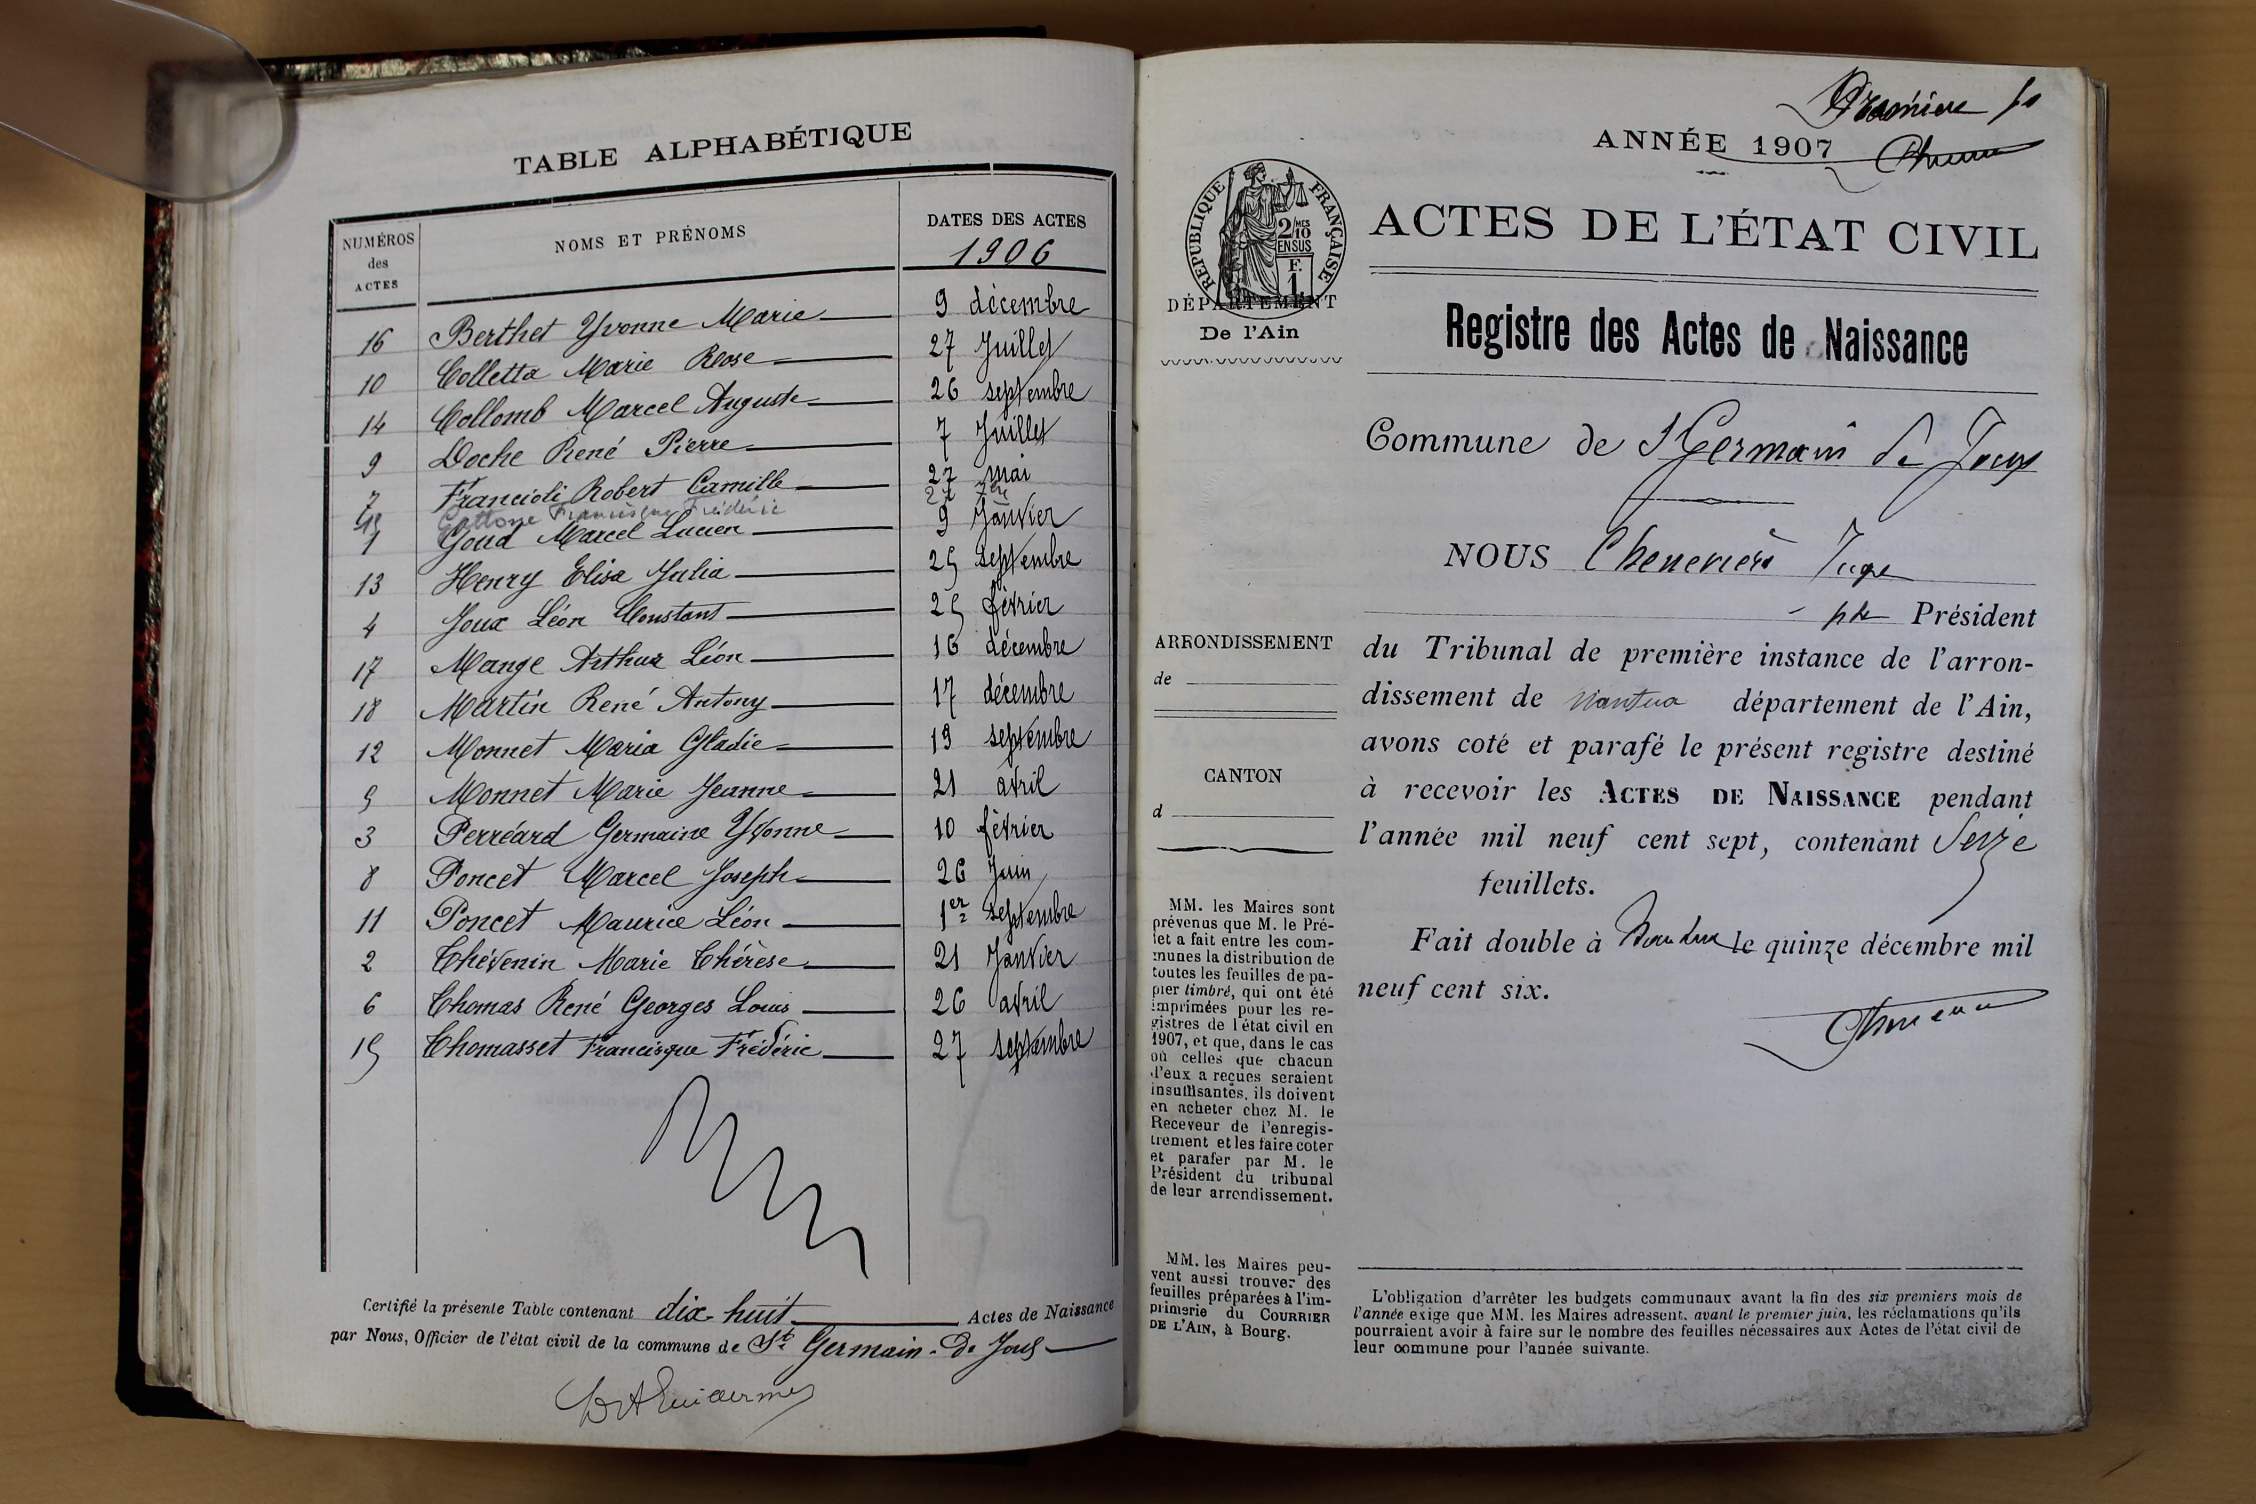 TABLE ALPHABÉTIQUE
NUMÉROS des ACTES
NOMS ET PRÉNOMS
DATES DES ACTES
1906
16 Berthet Yvonne Marie 9 décembre
10 Colletta Marie Rose 27 Juillet
14 Collomb Marcel Auguste 26 septembre
9 Doche René Pierre 7 Juillet
7 Francioli Robert Camille 27 mai
15 Francisque Frédéric 27 7bre
1 Goud Marcel Lucien 9 Janvier
13 Henry Elisa Julia 25 septembre
4 Joux Léon Constant 25 février
17 Mange Arthur Léon 16 décembre
18 Martin René Antony 17 décembre
12 Monnet Maria Gladie 19 septembre
5 Monnet Marie Jeanne 21 avril
3 Perréard Germaine Yvonne 10 février
8 Poncet Marcel Joseph 26 Juin
11 Poncet Maurice Léon 1er septembre
2 Thévenin Marie Thérèse 21 Janvier
6 Thomas René Georges Louis 26 avril
15 Thomasset Francisque Frédéric 27 septembre
Certifié la présente Table contenant dix-huit Actes de Naissance
par Nous, Officier de l'état civil de la commune de St Germain-de Joux
Première
ANNÉE 1907
RÉPUBLIQUE FRANÇAISE
2/10 MES
EN SUS
F.
1
ACTES DE L'ÉTAT CIVIL
DÉPARTEMENT
De l'Ain
Registre des Actes de Naissance
Commune de St Germain de Joux
NOUS Juge
Président
ARRONDISSEMENT
de
du Tribunal de première instance de l'arron-
dissement de Nantua département de l'Ain,
avons coté et parafé le présent registre destiné
CANTON
d
à recevoir les ACTES DE NAISSANCE pendant
l'année mil neuf cent sept, contenant Seize
feuillets.
Fait double à Nantua le quinze décembre mil
neuf cent six.
MM. les Maires sont
prévenus que M. le Pré-
fet a fait entre les com-
munes la distribution de
toutes les feuilles de pa-
pier timbré, qui ont été
imprimées pour les re-
gistres de l'état civil en
1907, et que, dans le cas
où celles que chacun
d'eux a reçues seraient
insuffisantes, ils doivent
en acheter chez M. le
Receveur de l'enregis-
trement et les faire coter
et parafer par M. le
Président du tribunal
de leur arrondissement.
MM. les Maires peu-
vent aussi trouver des
feuilles préparées à l'im-
primerie du COURRIER
DE L'AIN, à Bourg.
L'obligation d'arrêter les budgets communaux avant la fin des six premiers mois de
l'année exige que MM. les Maires adressent, avant le premier juin, les réclamations qu'ils
pourraient avoir à faire sur le nombre des feuilles nécessaires aux Actes de l'état civil de
leur commune pour l'année suivante.